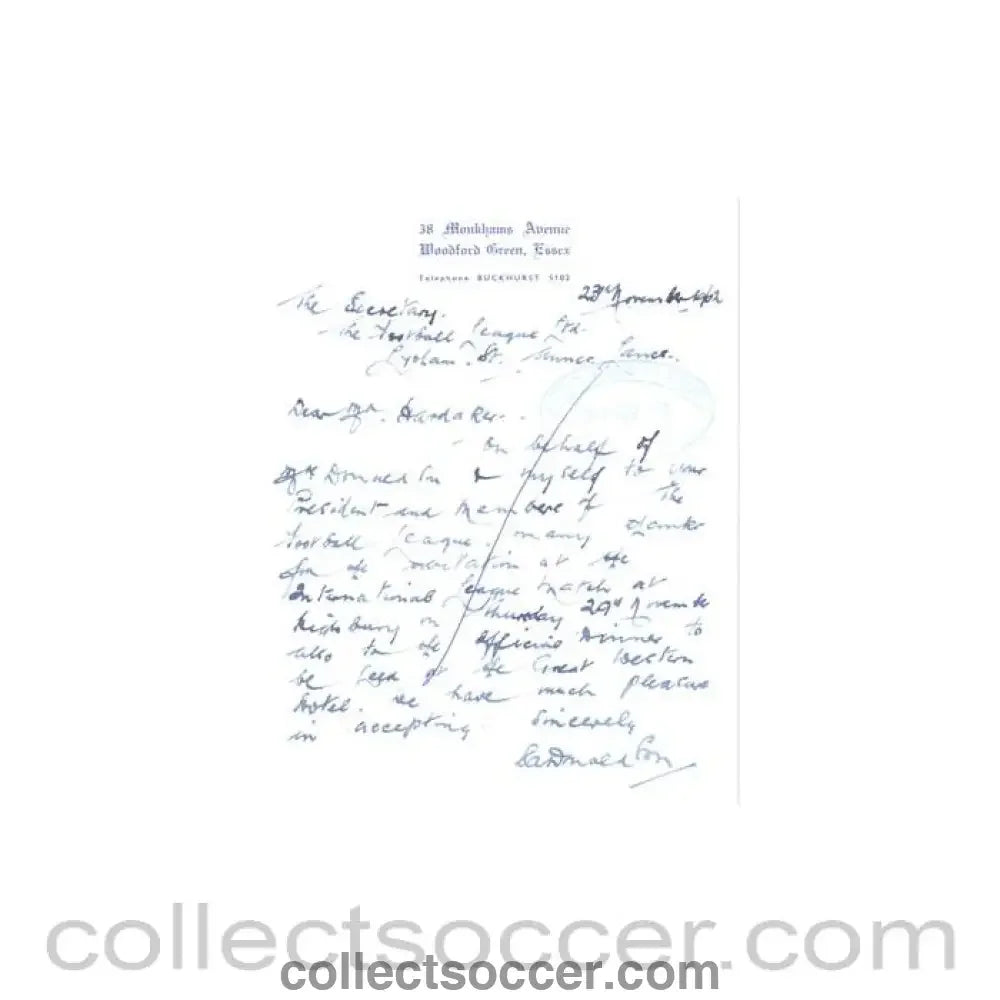 38 Monkhams Avenue
Woodford Green, Essex
Telephone BUCKHURST 5102
23rd November 1962
The Secretary.
The Football League Ltd.
Lytham. St. Annes. Lancs.
Dear Mr. Hardaker.
On behalf of
Mrs Donaldson & myself to your
President and Members of The
Football League. many thanks
for the invitation at the
International League Match at
Highbury on Thursday 29th November
also to the Official Dinner to
be held at the Great Western
Hotel. We have much pleasure
in accepting. Sincerely
Donaldson
collectsoccer.com
collectsoccer.com